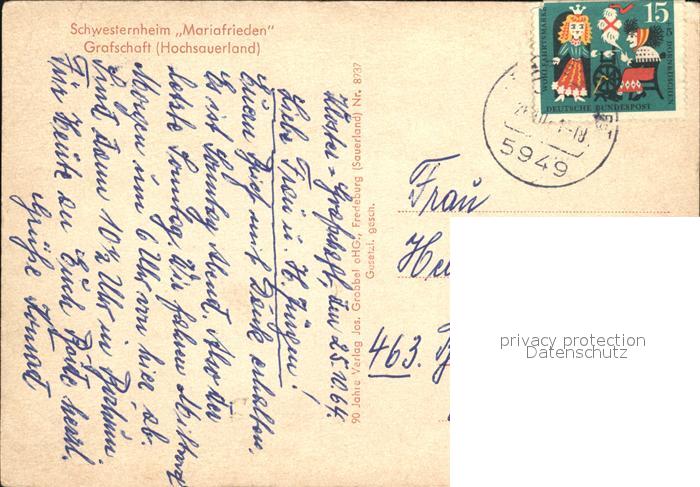 Schwesternheim „Mariafrieden"
Grafschaft (Hochsauerland)
Kloster-Grafschaft, den 25.10.64.
Liebe Frau u. H. Jürgen!
Euren Brief mit Dank erhalten.
Es ist Sonntag Abend. Also der
letzte Sonntag. Wir fahren Mittwoch
Morgen um 6 Uhr von hier ab.
Sind dann 10½ Uhr in Bochum
Für Heute an Euch Beide herzl.
Grüße Konrad
90 Jahre Verlag Jos. Grobbel oHG., Fredeburg (Sauerland) Nr. 8737
Gesetzl. gesch.
15
+5
DORNRÖSCHEN
WOHLFAHRTSMARKE
DEUTSCHE BUNDESPOST
-18
5949
Frau
463.
privacy protection
Datenschutz